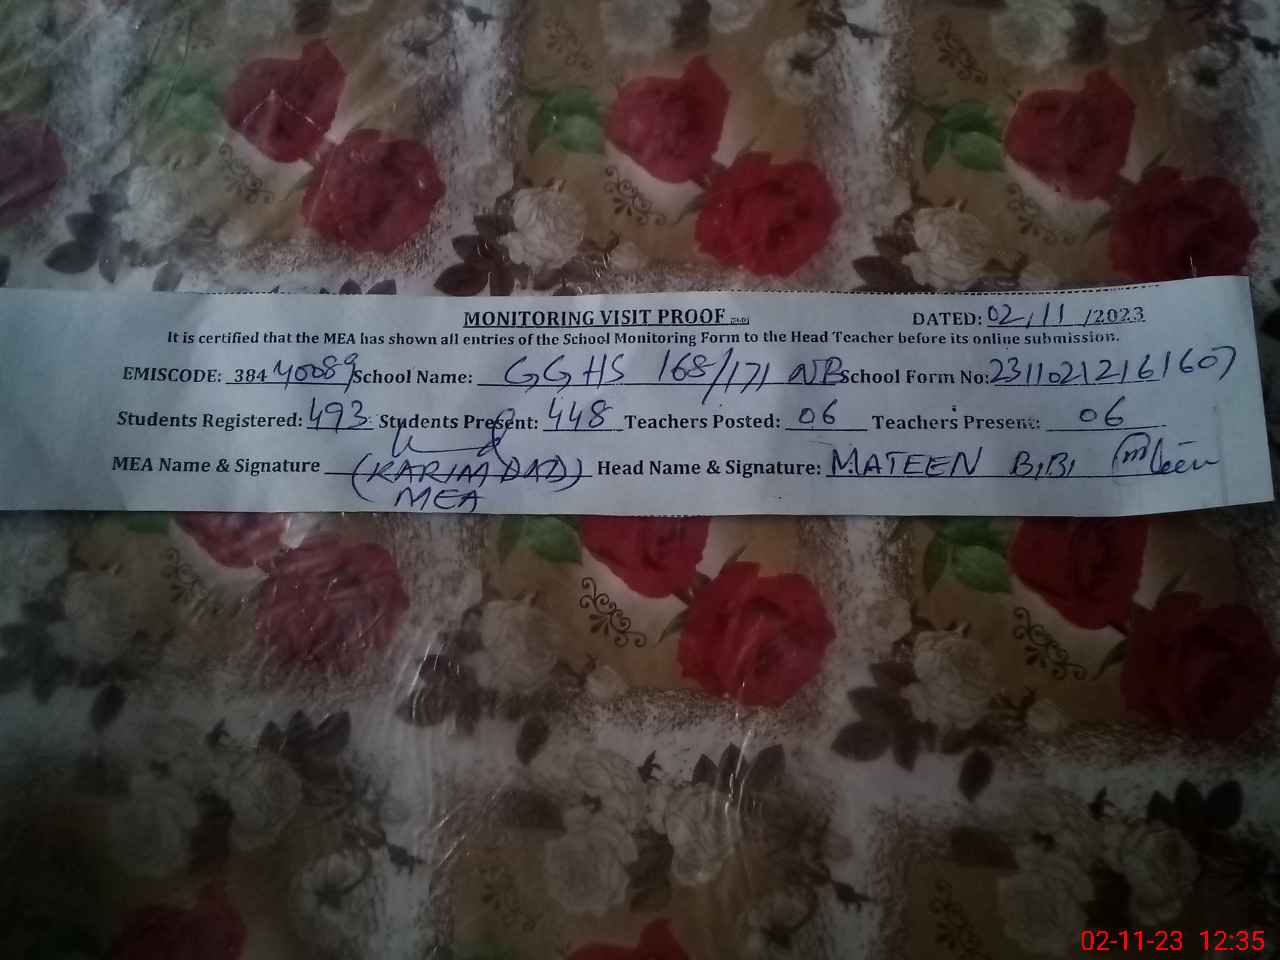 MONITORING VISIT PROOF
DATED: 02/11/2023
It is certified that the MEA has shown all entries of the School Monitoring Form to the Head Teacher before its online submission.
EMISCODE: 38440089 School Name: GGHS 168/171 NB School Form No: 23110212161607
Students Registered: 493 Students Present: 448 Teachers Posted: 06 Teachers Present: 06
MEA Name & Signature (KARIM DAD) Head Name & Signature: MATEEN BIBI Mateen
MEA
02-11-23 12:35